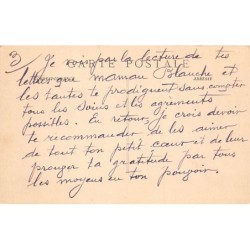 3) Je vois par la lecture de tes
CARTE POSTALE
lettres que maman Blanche et
CORRESPONDANCE
ADRESSE
les tantes te prodiguent sans compter
tous les soins et les agréments
possibles. En retour, je crois devoir
te recommander de les aimer
de tout ton petit cœur et de leur
prouver ta gratitude par tous
les moyens en ton pouvoir.